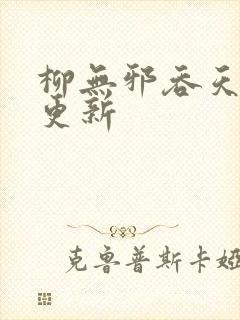 柳無邪吞天
更新
克魯普斯卡婭